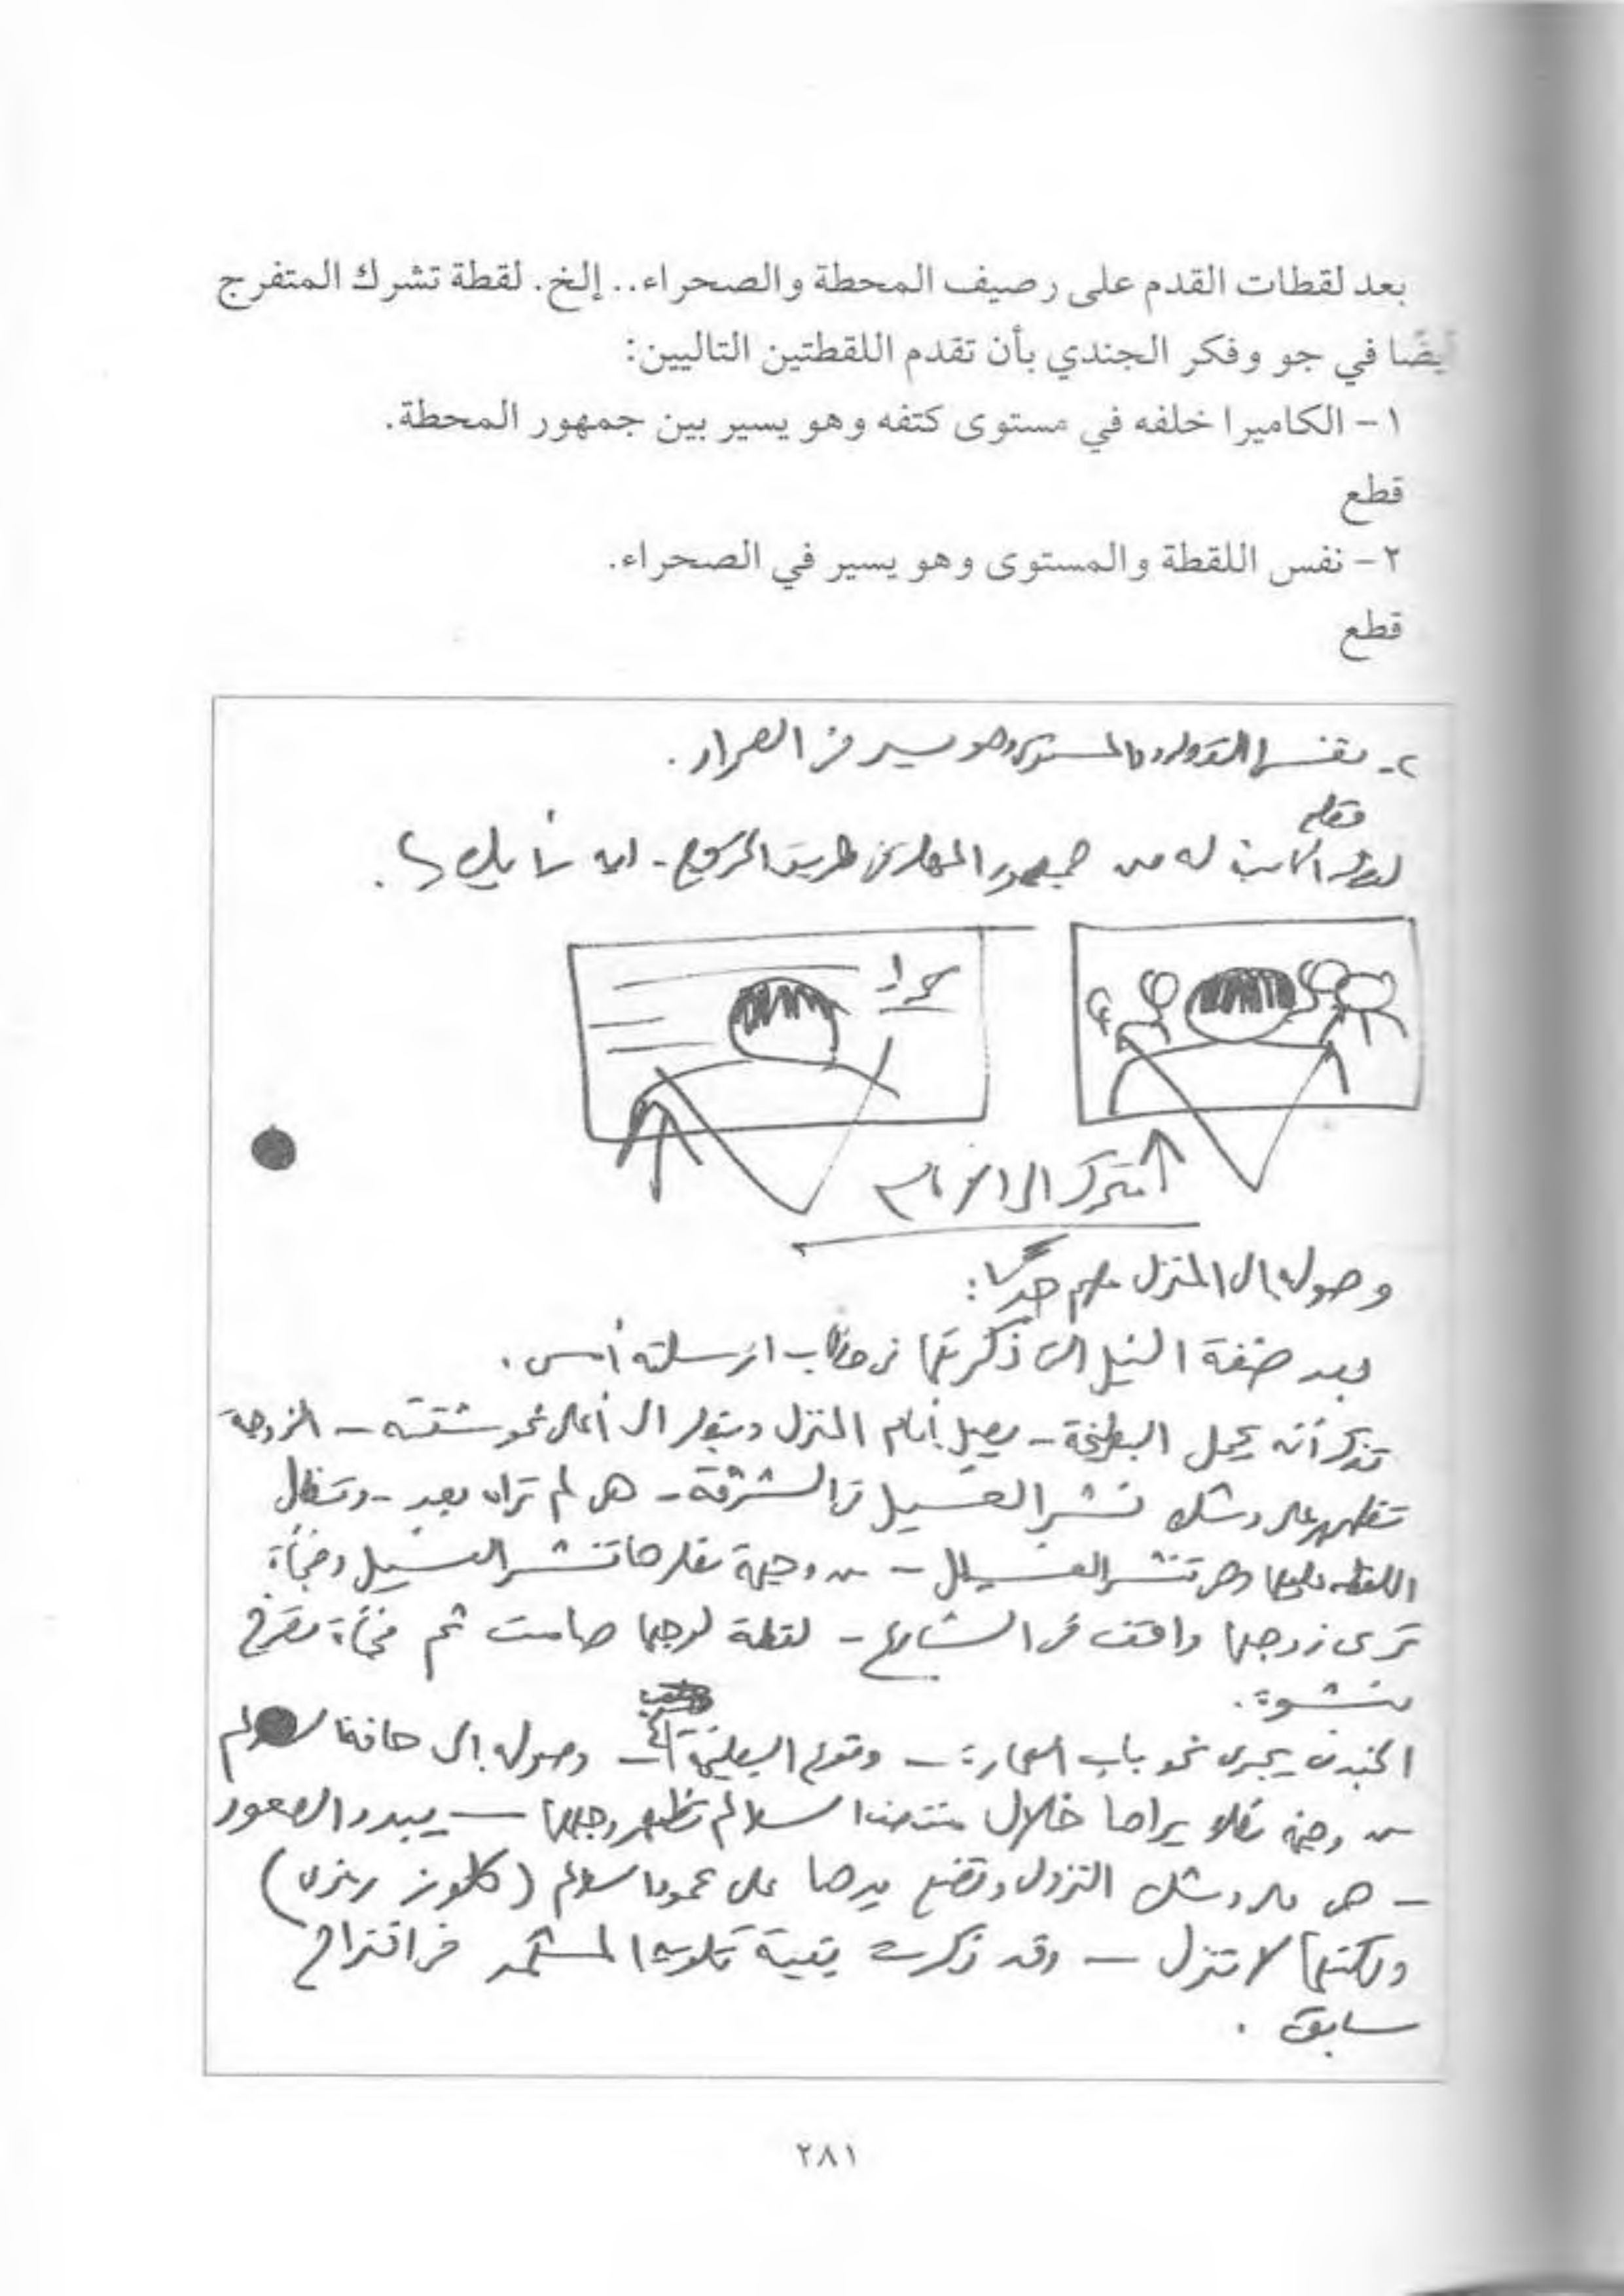 بعد لقطات القدم على رصيف المحطة والصحراء.. إلخ. لقطة تشرك المتفرج
أيضًا في جو وفكر الجندي بأن تقدم اللقطتين التاليين:
١ - الكاميرا خلفه في مستوى كتفه وهو يسير بين جمهور المحطة.
قطع
٢ - نفس اللقطة والمستوى وهو يسير في الصحراء.
قطع
٢- نفس اللقطة والمستوى وهو يسير في الصحراء.
قطع
له من جمهور المحطة في طريق الخروج - ايه رأيك؟
صحراء
تتحرك إلى الأمام
وصوله إلى المنزل مهم جدًا:
بعد ضفة النيل التي ذكرتها في خطاب أرسلته أمس.
تذكر أنه يحمل البطيخة - يصل أمام المنزل وينظر إلى أعلى نحو شقته - الزوجة
تظهر على وشك نشر الغسيل في الشرفة - هي لم تراه بعد - وتظل
اللقطة عليها وهي تنشر الغسيل - من وجهة نظرها تنشر الغسيل وفجأة
ترى زوجها واقف في الشارع - لقطة لوجهها صامت ثم فجأة تصرخ
بنشوة.
الجندي يجري نحو باب العمارة - وتقع البطيخة - وصوله إلى حافة السلم
من وجهة نظره يراها خلال السلالم تظهر وجهها - يبدد الصعود
- هي على وشك النزول وتضع يدها على عمود السلم (كلوز
ولكنها لا تنزل - وقد ذكرت بقية تكوين المشهد في اقتراح
سابق.
٢٨١